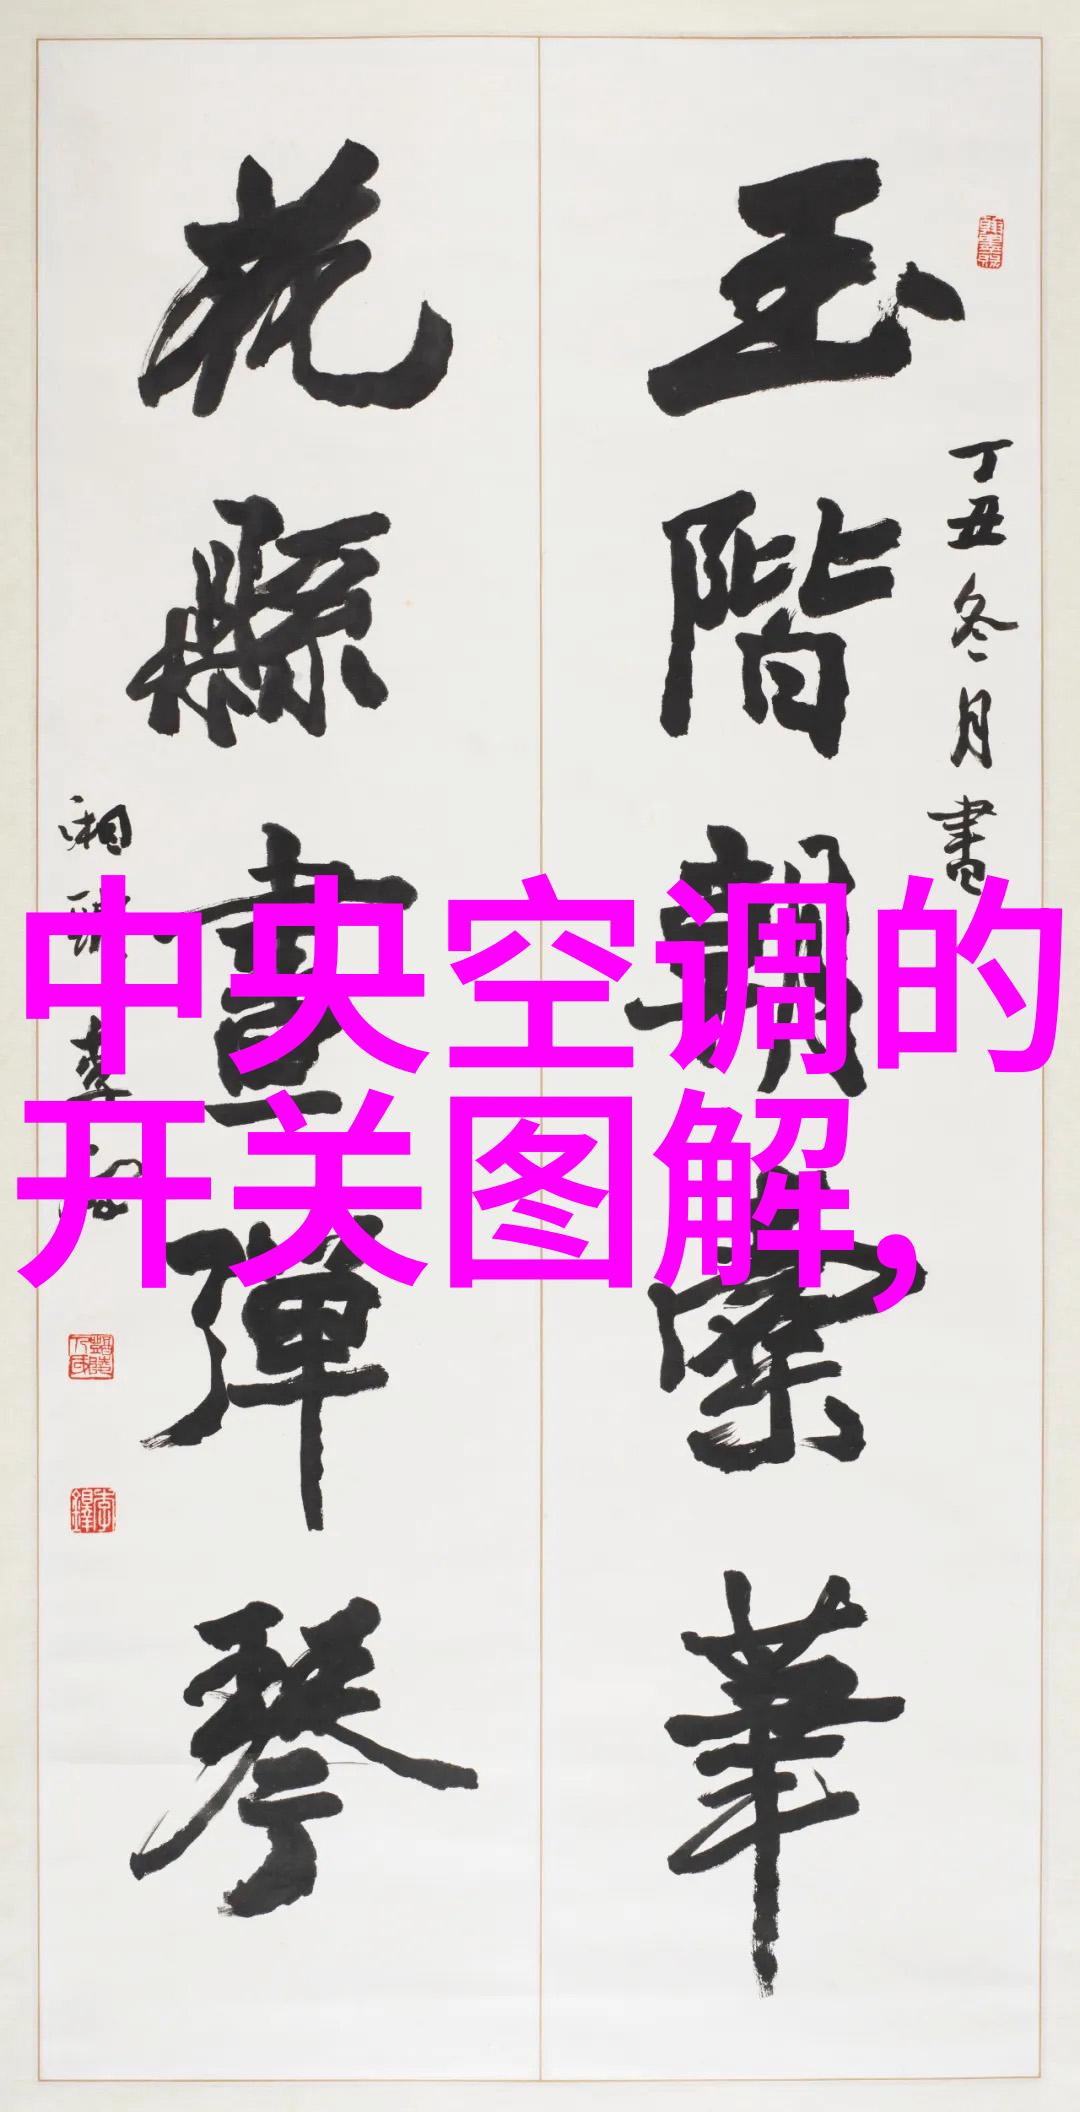 玉階朝
丁丑冬月書
花縣晝彈琴
湘
李
中央空调的
开关图解,